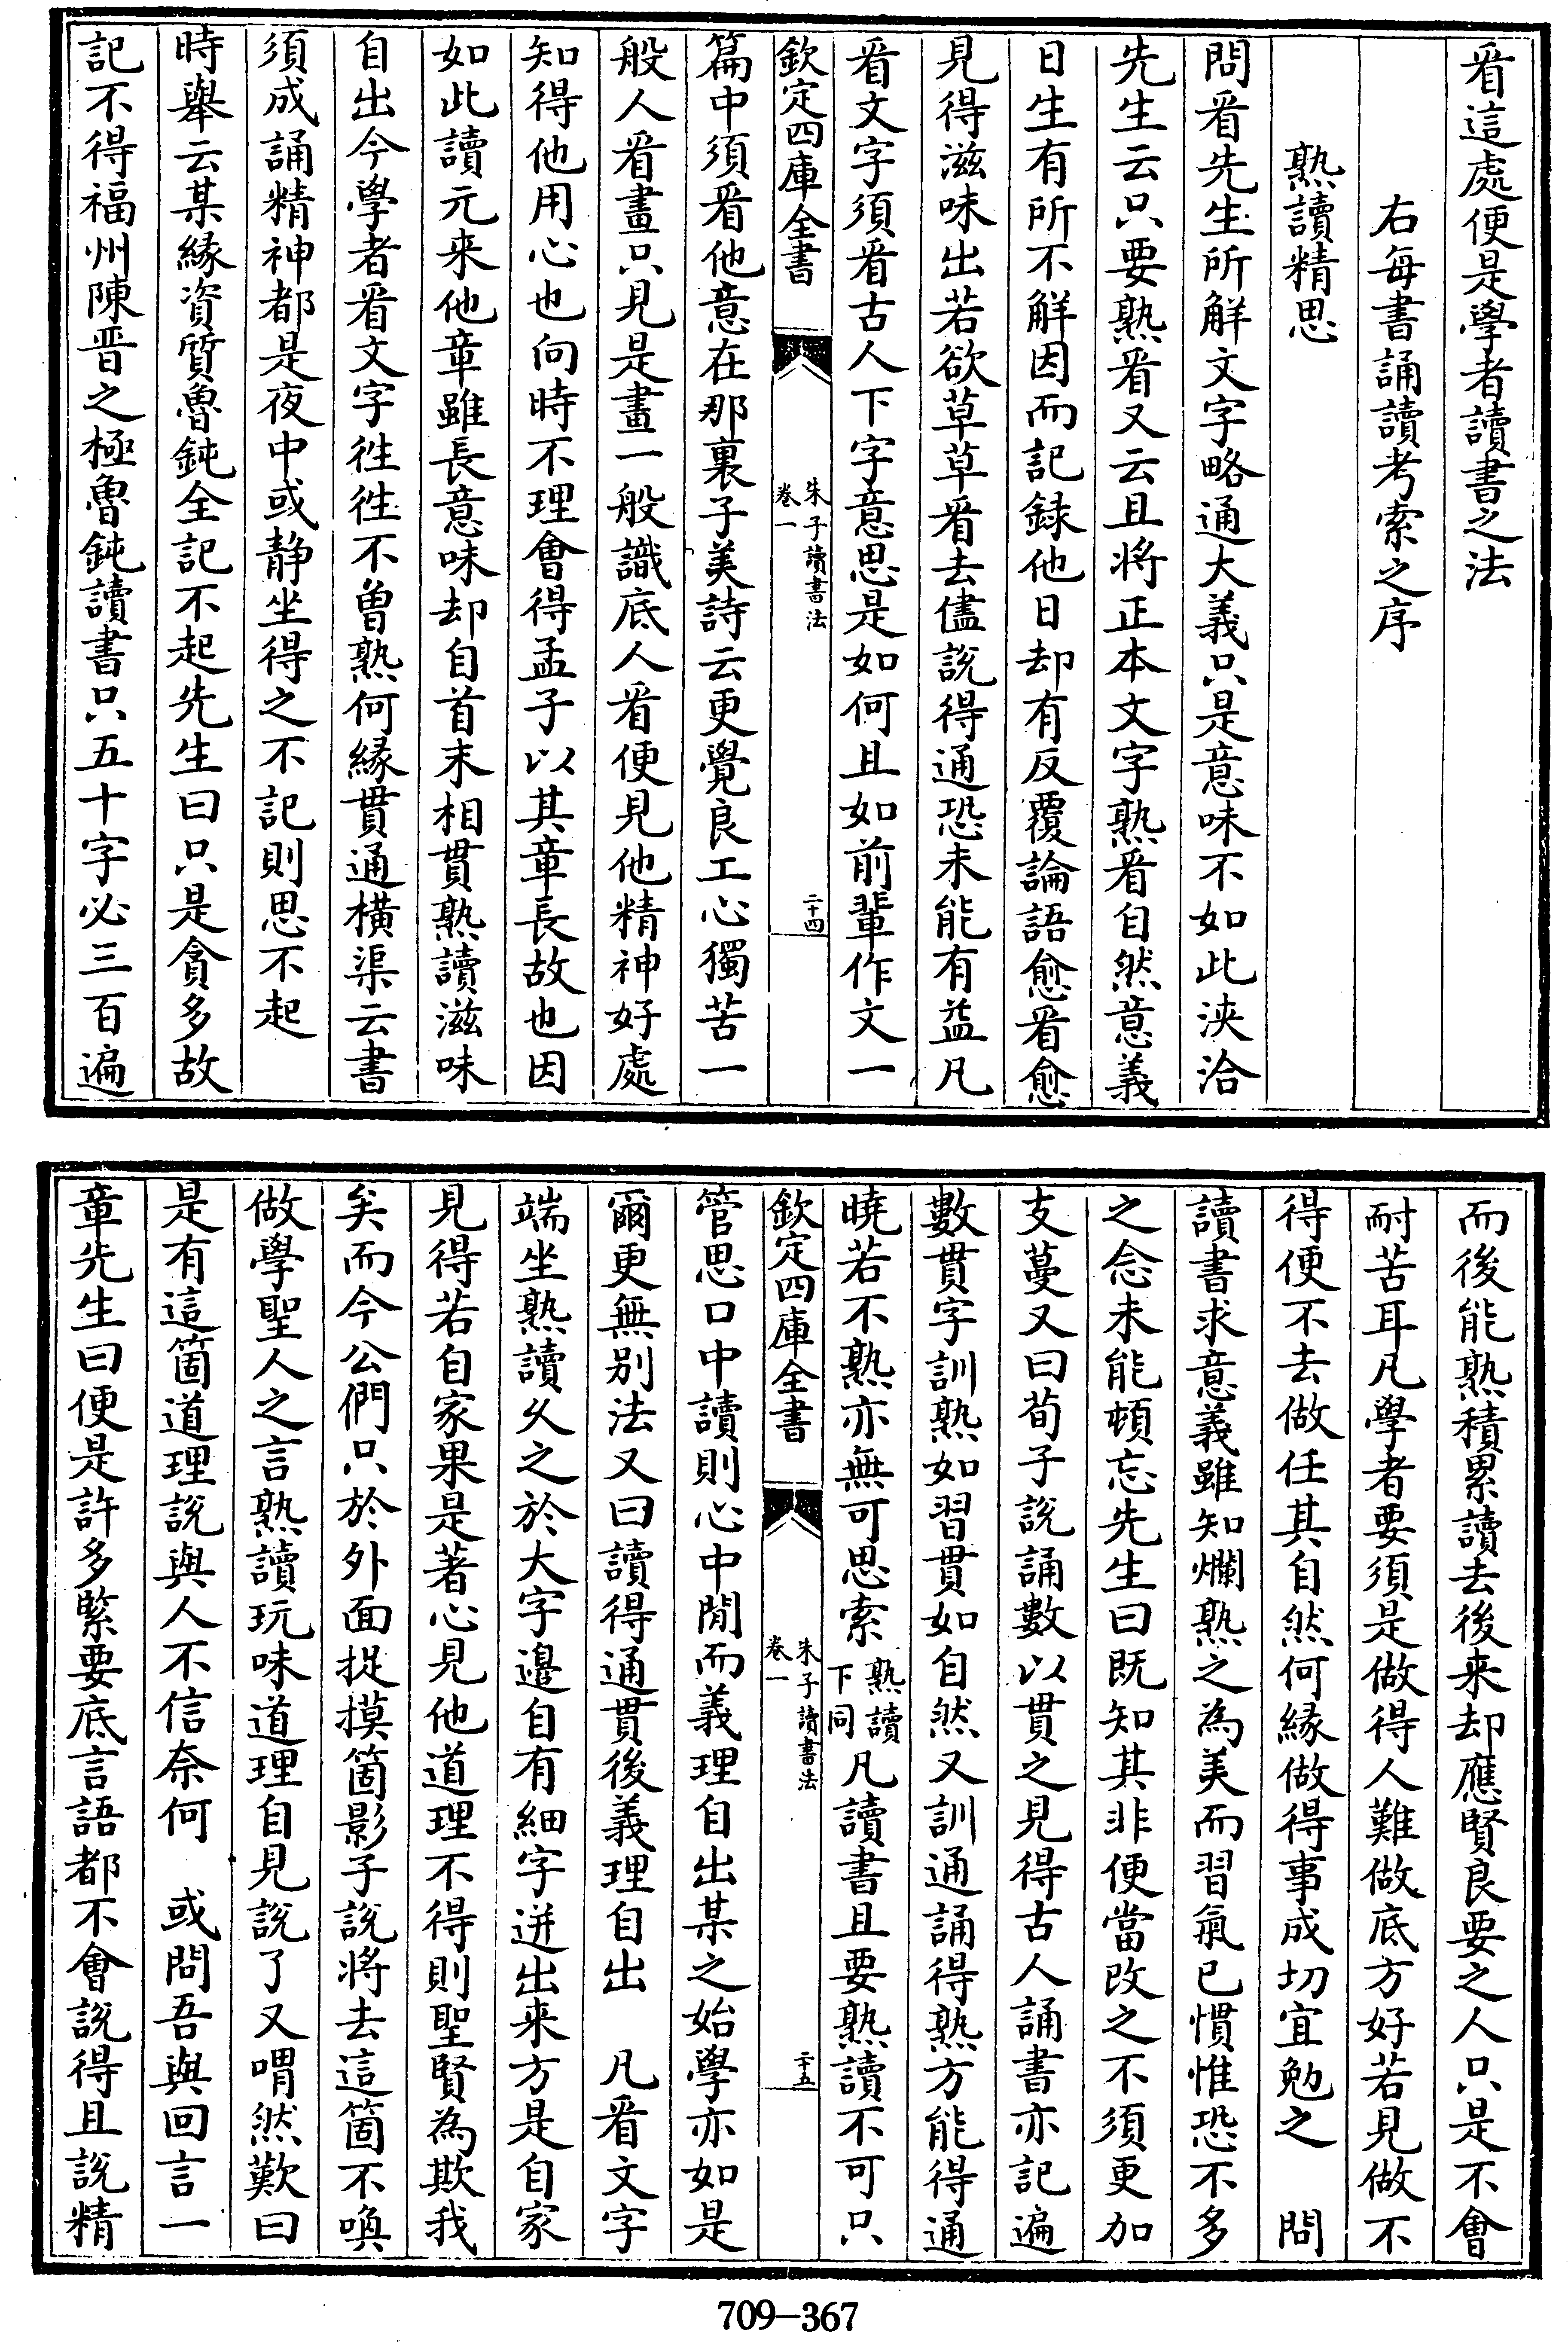 看這處便是學者讀書之法
右每書誦讀考索之序
熟讀精思
問看先生所解文字略通大義只是意味不如此浹洽
先生云只要熟看又云且將正本文字熟看自然意義
日生有所不解因而記録他日却有反覆論語愈看愈
見得滋味出若欲草草看去儘說得通恐未能有益凡
看文字須看古人下字意思是如何且如前輩作文一
欽定四庫全書
朱子讀書法
卷一
二十四
篇中須看他意在那裏子美詩云更覺良工心獨苦一
般人看畫只見是畫一般識底人看便見他精神好處
知得他用心也向時不理會得孟子以其章長故也因
如此讀元来他章雖長意味却自首末相貫熟讀滋味
自出今學者看文字徃徃不曽熟何緣貫通横渠云書
須成誦精神都是夜中或静坐得之不記則思不起
時舉云某緣資質魯鈍全記不起先生曰只是貪多故
記不得福州陳晋之極魯鈍讀書只五十字必三百遍
而後能熟積累讀去後来却應賢良要之人只是不會
耐苦耳凡學者要須是做得人難做底方好若見做不
得便不去做任其自然何緣做得事成切宜勉之　問
讀書求意義雖知爛熟之為美而習氣已慣惟恐不多
之念未能頓忘先生曰既知其非便當改之不須更加
支蔓又曰荀子說誦數以貫之見得古人誦書亦記遍
數貫字訓熟如習貫如自然又訓通誦得熟方能得通
曉若不熟亦無可思索熟讀下同凡讀書且要熟讀不可只
欽定四庫全書
朱子讀書法
卷一
二十五
管思口中讀則心中閒而義理自出某之始學亦如是
爾更無别法又曰讀得通貫後義理自出　凡看文字
端坐熟讀乆之於大字邉自有細字迸出来方是自家
見得若自家果是著心見他道理不得則聖賢為欺我
矣而今公們只於外面捉摸箇影子說將去這箇不喚
做學聖人之言熟讀玩味道理自見說了又喟然歎曰
是有這箇道理說與人不信奈何　或問吾與回言一
章先生曰便是許多緊要底言語都不會說得且說精
709-367